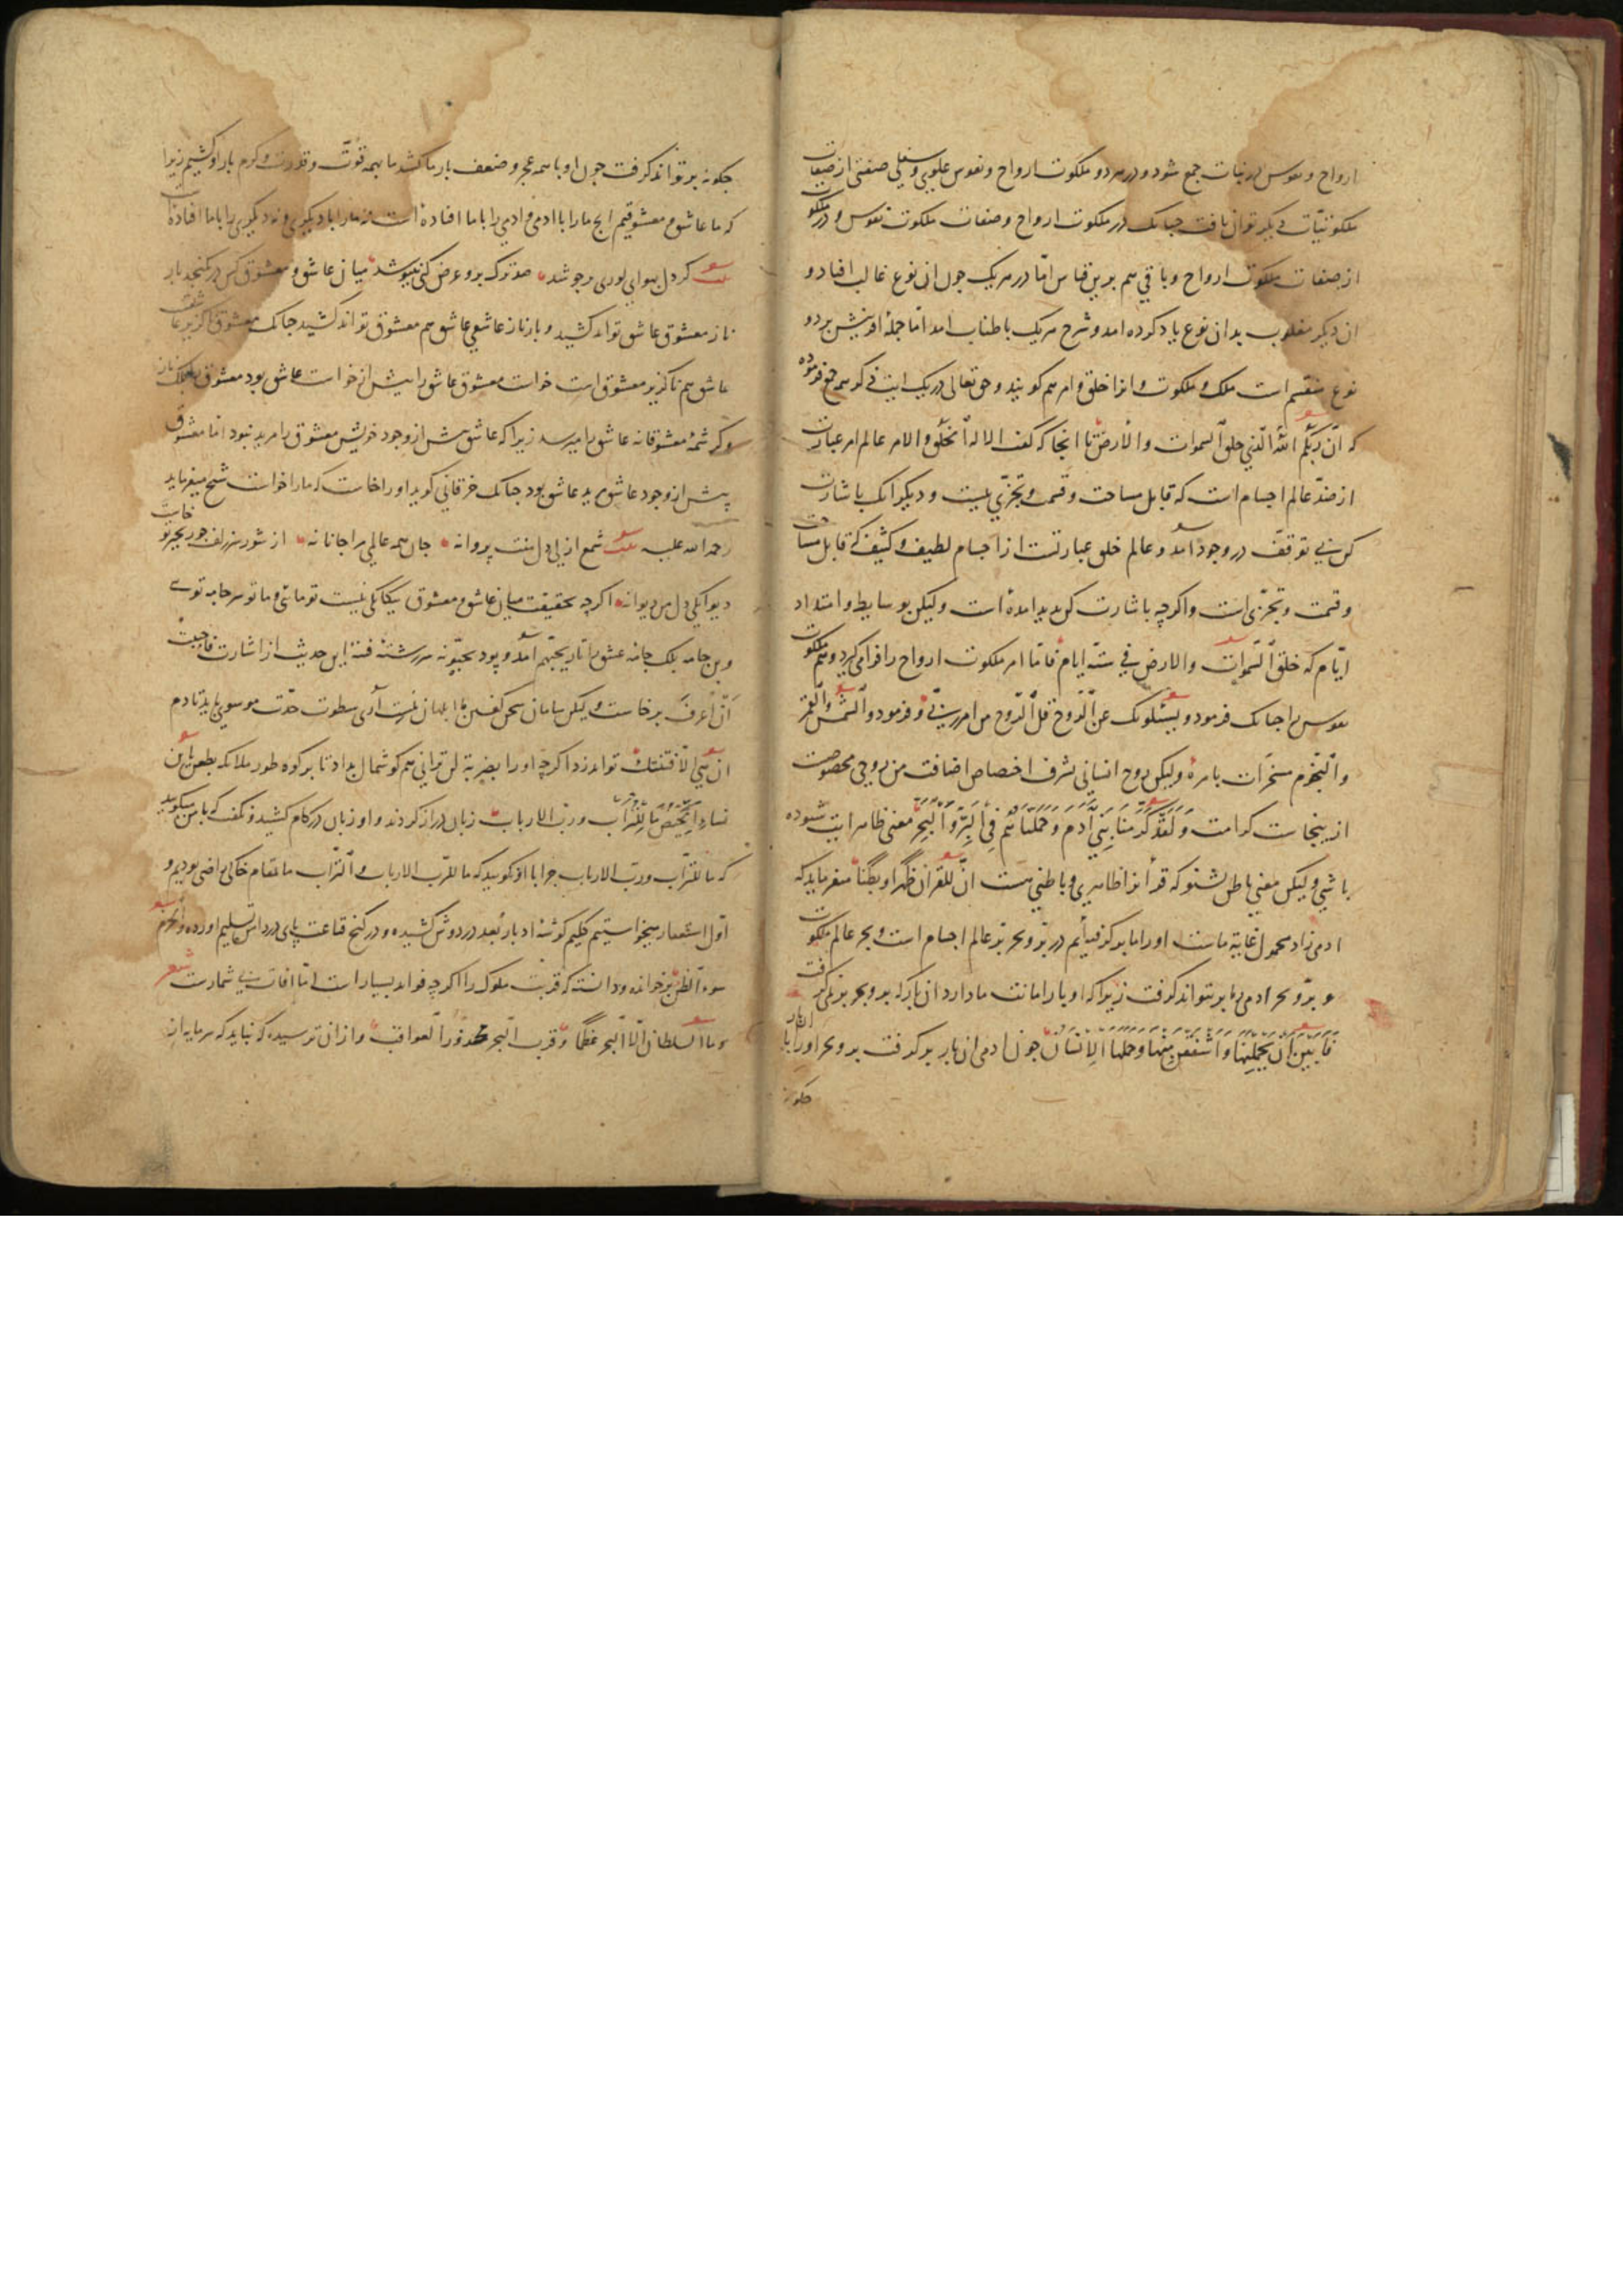 ارواح و نفوس در نبات جمع شود و در هر دو ملکوت ارواح و نفوس علوی و سفلی صفتی از صفات
ملکوتیات دیگر توان یافت چنانک در ملکوت ارواح و صفات ملکوت نفوس و در ملکوت
از صفات ملکوت ارواح و باقی هم برین قیاس اما در هر یک چون ان نوع غالب افتاد و
ان دیگر مغلوب بدان نوع یاد کرده امد و شرح هر یک باطناب امد اما جملهٔ افرینش بر دو
نوع منقسم است ملک و ملکوت و انرا خلق و امر هم گویند و حق تعالی در یک ایت ذکر هر دو جمع فرموده
که ان ربکم الله الذی خلق السموات والارض تا انجا که گفت الا له الخلق والامر عالم امر عبارت
از ضد عالم اجسام است که قابل مساحت و قسمت و تجزی نیست و دیگر انک باشارت
کن بی توقف در وجود آمد و عالم خلق عبارتست از اجسام لطیف و کثیف که قابل مساحت
و قسمت و تجزی است و اگرچه باشارت کن پدید امده است ولیکن بوسایط و امتداد
ایام که خلق السموات والارض فی ستة ایام فاما امر ملکوت ارواح را فرا می گیرد و هم ملکوت
نفوس را چنانک فرمود ویسئلونک عن الروح قل الروح من امر ربی و فرمود والشمس والقمر
والنجوم مسخرات بامره ولیکن روح انسانی بشرف اختصاص اضافت من روحی مخصوصست
ازینجاست کرامت وَلَقَدْ کَرَّمْنَا بَنِی آدَمَ وَحَمَلْنَاهُمْ فِی الْبَرِّ وَالْبَحْرِ معنی ظاهر ایت شنوده
باشی ولیکن معنی باطن بشنو که قرآنرا ظاهری و باطنی هست ان للقران ظهرا و بطنا میفرماید که
ادمی زاد محمول عنایة ماست اورا ما بر گرفته‌ایم در بر و بحر بر عالم اجسام است و بحر عالم ملکوت
و بر و بحر ادمی را بر نتواند گرفت زیرا که او بار امانت ما دارد ان بار که بر و بحر بر نمی گرفت
فَاَبَیْنَ اَنْ یَحْمِلْنَهَا وَاَشْفَقْنَ مِنْهَا وَحَمَلَهَا الْاِنْسَانُ چون ادمی ان بار بر گرفت بر و بحر اورا با ان بار
چگونه
چگونه بر تواند گرفت چون او با همه عجز و ضعف بار ما کشد ما بهمه قوت و قدرت و کرم بار او کشیم زیرا
که ما عاشق و معشوقیم انچ ما را با ادمی و ادمی را با ما افتاده است نه ما را با دیگری و نه دیگری را با ما افتاده است
میان عاشق و معشوق کس در نگنجد بار
ناز معشوق عاشق تواند کشید و باز ناز عاشقی عاشق هم معشوق تواند کشید چنانک معشوق ناگزیر عاشق
عاشق هم ناگزیر معشوق است خواست معشوق عاشق را پیش از خواست عاشق بود معشوق را بلک ناز
و کرشمهٔ معشوقانه عاشق را میرسد زیرا که عاشق پیش از وجود خویش معشوق را مرید نبود اما معشوق
پیش از وجود عاشق مرید عاشق بود چنانک خرقانی گوید اورا خاست که ما را خواست شیخ میفرماید
رحمة الله علیه بیت شمع ازلی دل منت پروانه جان همه عالمی مرا جانانه از شور سر زلف چو زنجیر تو خاست
دیوانگی دل من دیوانه اگرچه بحقیقت میان عاشق و معشوق بیگانگی نیست تو مائی و ما تو سر جامه توی
و بن جامه بلک جامه عشق را تار یحبهم آمد و پود یحبونه سررشتهٔ فتنه این حدیث از اشارت فاحببت
اَنْ اُعْرَفَ برخاست ولیکن سامان سخن گفتن ما ایشان نیست آری سطوت حدت موسوی باید تا دم
ان هی الا فتنتک تواند زد اگرچه اورا بضربة لن ترانی هم گوشمال بداد تا بر کوه طور ملائکه بطعن ابن
نساء الحیض ما للتراب و رب الارباب زبان دراز کردند و او زبان در کام کشید و نگفت که با من میگویید
که ما للتراب و رب الارباب چرا با او نگویید که ما لرب الارباب و التراب ما بمقام خاکی راضی بودیم و
اول استغفار میخواستیم گلیم گوشهٔ ادبار بُعد در دوش کشیده و در کنج قناعت پای در دامن تسلیم اورده والحزم
سوء الظن بر خوانده و دانسته که قربت ملوک را اگرچه فواید بسیار است اما افات بی شمارست شعر
وما السلطان الا البحر عظما و قرب البحر محذور العواقب و از ان ترسیده که نباید که سرمایه ان